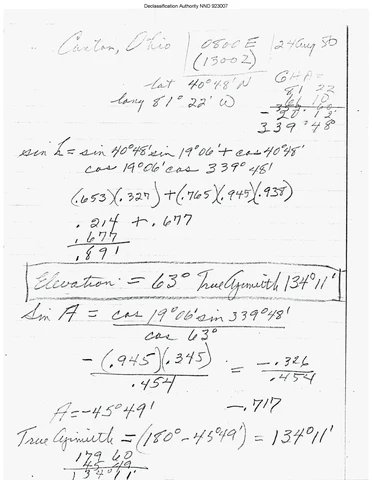 Declassification Authority NND 923007
Canton, Ohio | 0800 E | 24 Aug 50
(1300Z)
lat 40°48'N GHA =
long 81° 22' W 81 22
339° 48
sin h = sin 40°48' sin 19°06' + cos 40°48'
cos 19°06' cos 339° 48'
(.653)(.327) + (.765)(.945)(.938)
.214 + .677
.677
.891
Elevation = 63° True Azimuth 134°11'
Sin A = cos 19°06' sin 339°48'
cos 63°
-(.945)(.345) = -.326
.454 .454
A = -45°49' -.717
True Azimuth = (180° - 45°49') = 134°11'
179 60
45 49
134° 11'